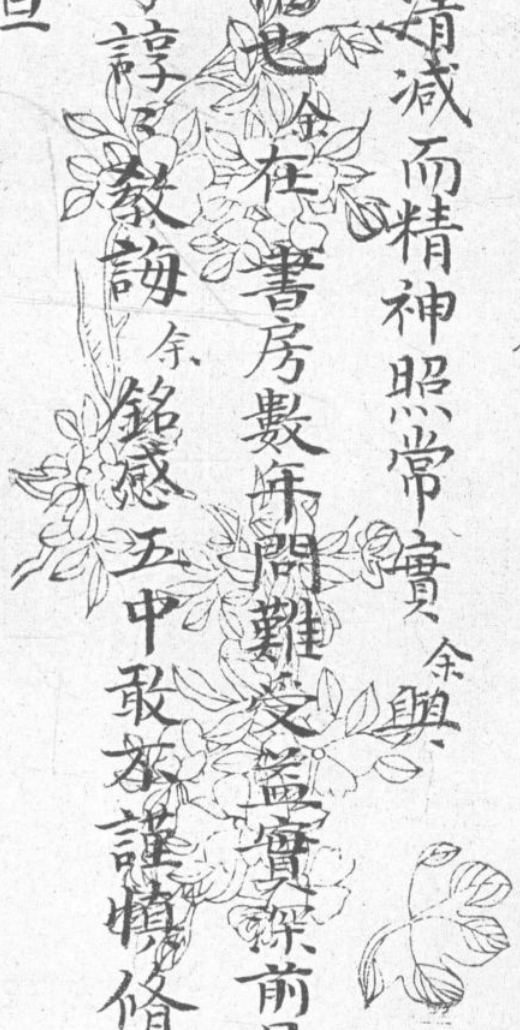 減而精神照常實余與
也余在 書房數年問難受益實深前
諄〻教誨余銘感五中敢不謹慎脩